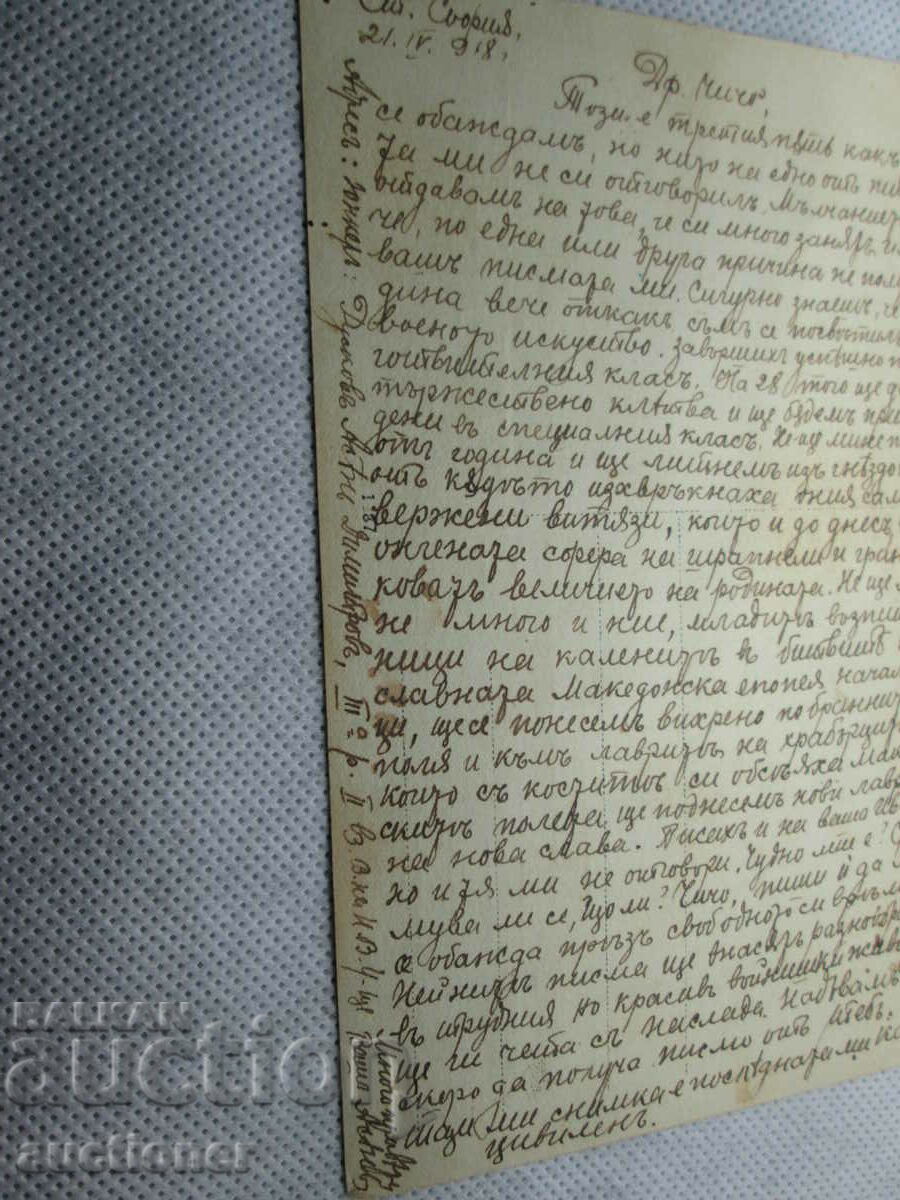 Ст. София,
21. IV. 918.
Др. Чичо,
Този е третия пѫть какъ
се обаждамъ, но нито на едно отъ пис
та ми не си отговорилъ. Мълчанието
отдавамъ на това, че си много заетъ и
че, по една или друга причина не пол
вашъ писмата ми. Сигурно знаешъ, че
дина вече откакъ съмъ се посветилъ
военото искуство. Завършихъ успѣшно
готвителния класъ. На 28 того ще
тържествено клѣтва и ще бѫдемъ при
дени въ специалния класъ. Не ще мине
отъ година и ще литнемъ изъ гнѣздо
отъ кѫдѣто изхвръкнаха ония сам
вержени витязи, които и до днесъ
огнената сфера на шрапнели и гран
коватъ величието на родината. Не ще
не много и ние, младитѣ възпи
ници на каленитѣ въ битвитѣ
славната Македонска епопея начал
ци, ще се понесемъ вихрено по бранни
поля и къмъ лавритѣ на храбрци
които съ коститѣ си обсѣяха мак
скитѣ полета ще поднесемъ нови лав
на нова слава. Писахъ и на ваша
но и тя ми не отговори. Чудно ми е?
мува ми се, що ли? Чичо, пиши ѝ да
се обажда прѣзъ свободното си врѣм
Нейнитѣ писма ще внасятъ разнооб
въ трудния но красивъ войнишки жив
ще ги чета съ наслада. Надѣвамъ
скоро да получа писмо отъ тебъ.
тази ми снимка е последната ми ка
цивиленъ.
Адресъ: Юнкеръ: Дусковъ Димитровъ, III а р. II вз. В. на Н. В. У-ще
Много здраве
БАЛКАН
auction
auctioner